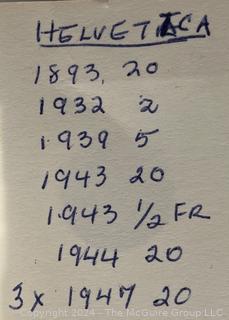 HELVETICA
1893, 20
1932 2
1939 5
1943 20
1943 1/2 FR
1944 20
3 x 1947 20
Copyright 2024 - The McGuire Group LLC